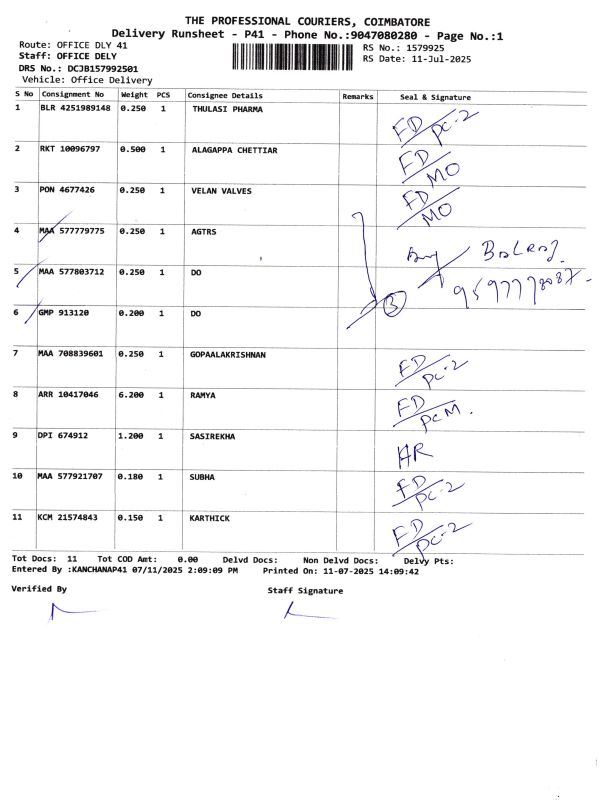 THE PROFESSIONAL COURIERS, COIMBATORE
Delivery Runsheet - P41 - Phone No.:9047080280 - Page No.:1
Route: OFFICE DLY 41
RS No.: 1579925
Staff: OFFICE DELY
RS Date: 11-Jul-2025
DRS No.: DCJB157992501
Vehicle: Office Delivery
S No Consignment No Weight PCS Consignee Details Remarks Seal & Signature
1 BLR 4251989148 0.250 1 THULASI PHARMA FD/PC-2
2 RKT 10096797 0.500 1 ALAGAPPA CHETTIAR FD/MO
3 PON 4677426 0.250 1 VELAN VALVES FD/MO
4 MAA 577779775 0.250 1 AGTRS
5 MAA 577803712 0.250 1 DO
6 GMP 913120 0.200 1 DO 3
7 MAA 708839601 0.250 1 GOPAALAKRISHNAN FD/PC-2
8 ARR 10417046 6.200 1 RAMYA FD/PCM.
9 DPI 674912 1.200 1 SASIREKHA HR
10 MAA 577921707 0.180 1 SUBHA FD/PC-2
11 KCM 21574843 0.150 1 KARTHICK FD/PC-2
Tot Docs: 11 Tot COD Amt: 0.00 Delvd Docs: Non Delvd Docs: Delvy Pts:
Entered By :KANCHANAP41 07/11/2025 2:09:09 PM Printed On: 11-07-2025 14:09:42
Verified By Staff Signature